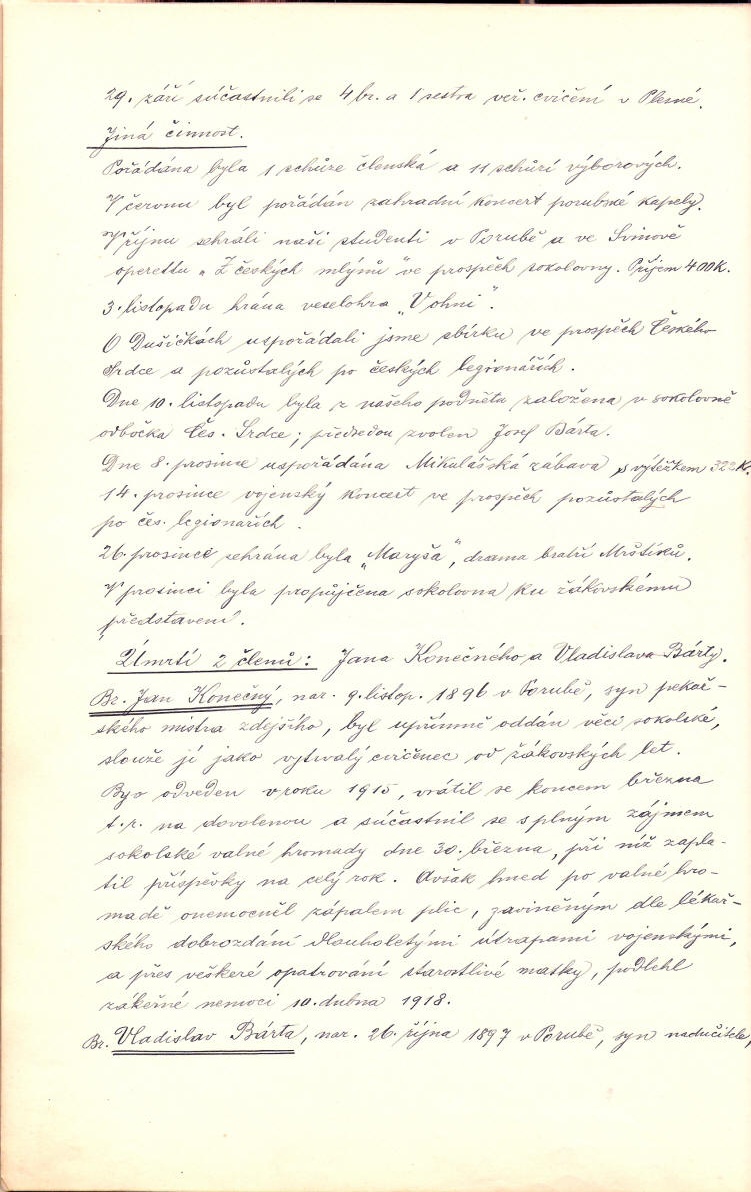 29. září súčastnili se 4 br. a 1 sestra veř. cvičení v Plesné.
Jiná činnost.
Pořádána byla 1 schůze členská a 11 schůzí výborových.
V červnu byl pořádán zahradní koncert porubské kapely.
V říjnu sehráli naši studenti v Porubě a ve Svinově
operettu „Z českých mlýnů" ve prospěch sokolovny. Příjem 400K.
3. listopadu hrána veselohra „V ohni".
O Dušičkách uspořádali jsme sbírku ve prospěch Českého
Srdce a pozůstalých po českých legionářích.
Dne 10. listopadu byla z našeho podnětu založena v sokolovně
odbočka Čes. Srdce; předsedou zvolen Josef Bárta.
Dne 8. prosince uspořádána Mikulášská zábava s výtěžkem 322K.
14. prosince vojenský koncert ve prospěch pozůstalých
po čes. legionářích.
26. prosince sehrána byla „Maryša", drama bratří Mrštíků.
V prosinci byla propůjčena sokolovna ku žákovskému
představení.
Úmrtí 2 členů: Jana Konečného a Vladislava Bárty.
Br. Jan Konečný, nar. 9. listop. 1896 v Porubě, syn pekař-
ského mistra zdejšího, byl upřímně oddán věci sokolské,
slouže jí jako vytrvalý cvičenec od žákovských let.
Byv odveden v roku 1915, vrátil se koncem března
t.r. na dovolenou a súčastnil se s plným zájmem
sokolské valné hromady dne 30. března, při níž zapla-
til příspěvky na celý rok. Avšak hned po valné hro-
madě onemocněl zápalem plic, zaviněným dle lékař-
ského dobrozdání dlouholetými útrapami vojenskými,
a přes veškeré opatrování starostlivé matky, podlehl
zákeřné nemoci 10. dubna 1918.
Br. Vladislav Bárta, nar. 26. října 1897 v Porubě, syn nadučitele,